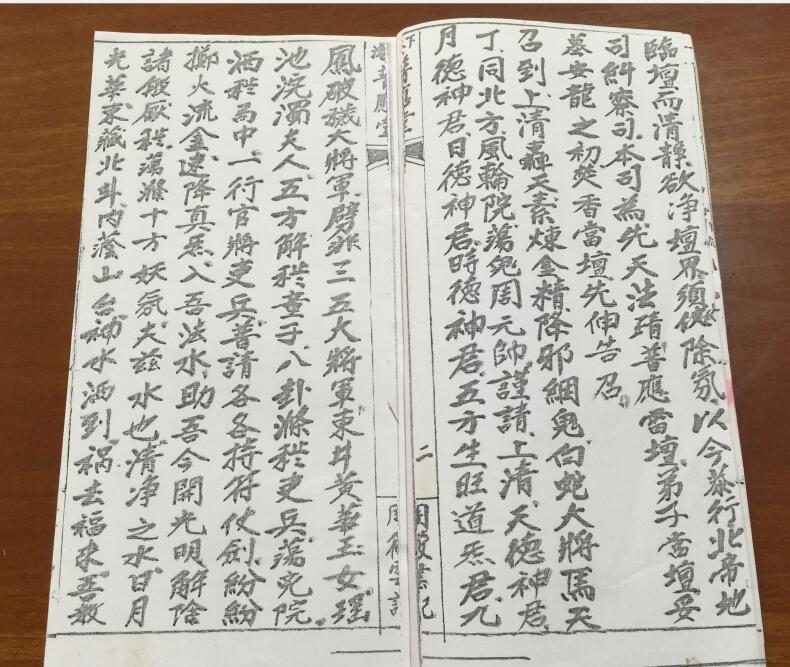 臨壇而清靜欲净壇界須德除氛以今恭行北帝地
司糾察司本司為先天法靖普應當壇弟子當壇妥
墓安龍之初焚香當壇先伸告召
召到上清轟天素煉金精降邪綑鬼白蛇大將馬天
丁同北方風輪院蕩鬼周元帥謹請上清天德神君
月德神君日德神君時德神君五方生旺道炁君九
二
鳳破穢大將軍劈非三五大將軍東井黃華玉女瑶
池浣濁夫人五方解秽童子八卦滌秽吏兵蕩兇院
洒秽局中一行官將吏兵普請各各持符仗劍紛紛
擲火流金速降真炁入吾法水助吾今開光明解除
諸般厭秽蕩滌十方妖氛夫兹水也清净之水日月
光華末藏北斗内滏山台神水洒到祸去福來